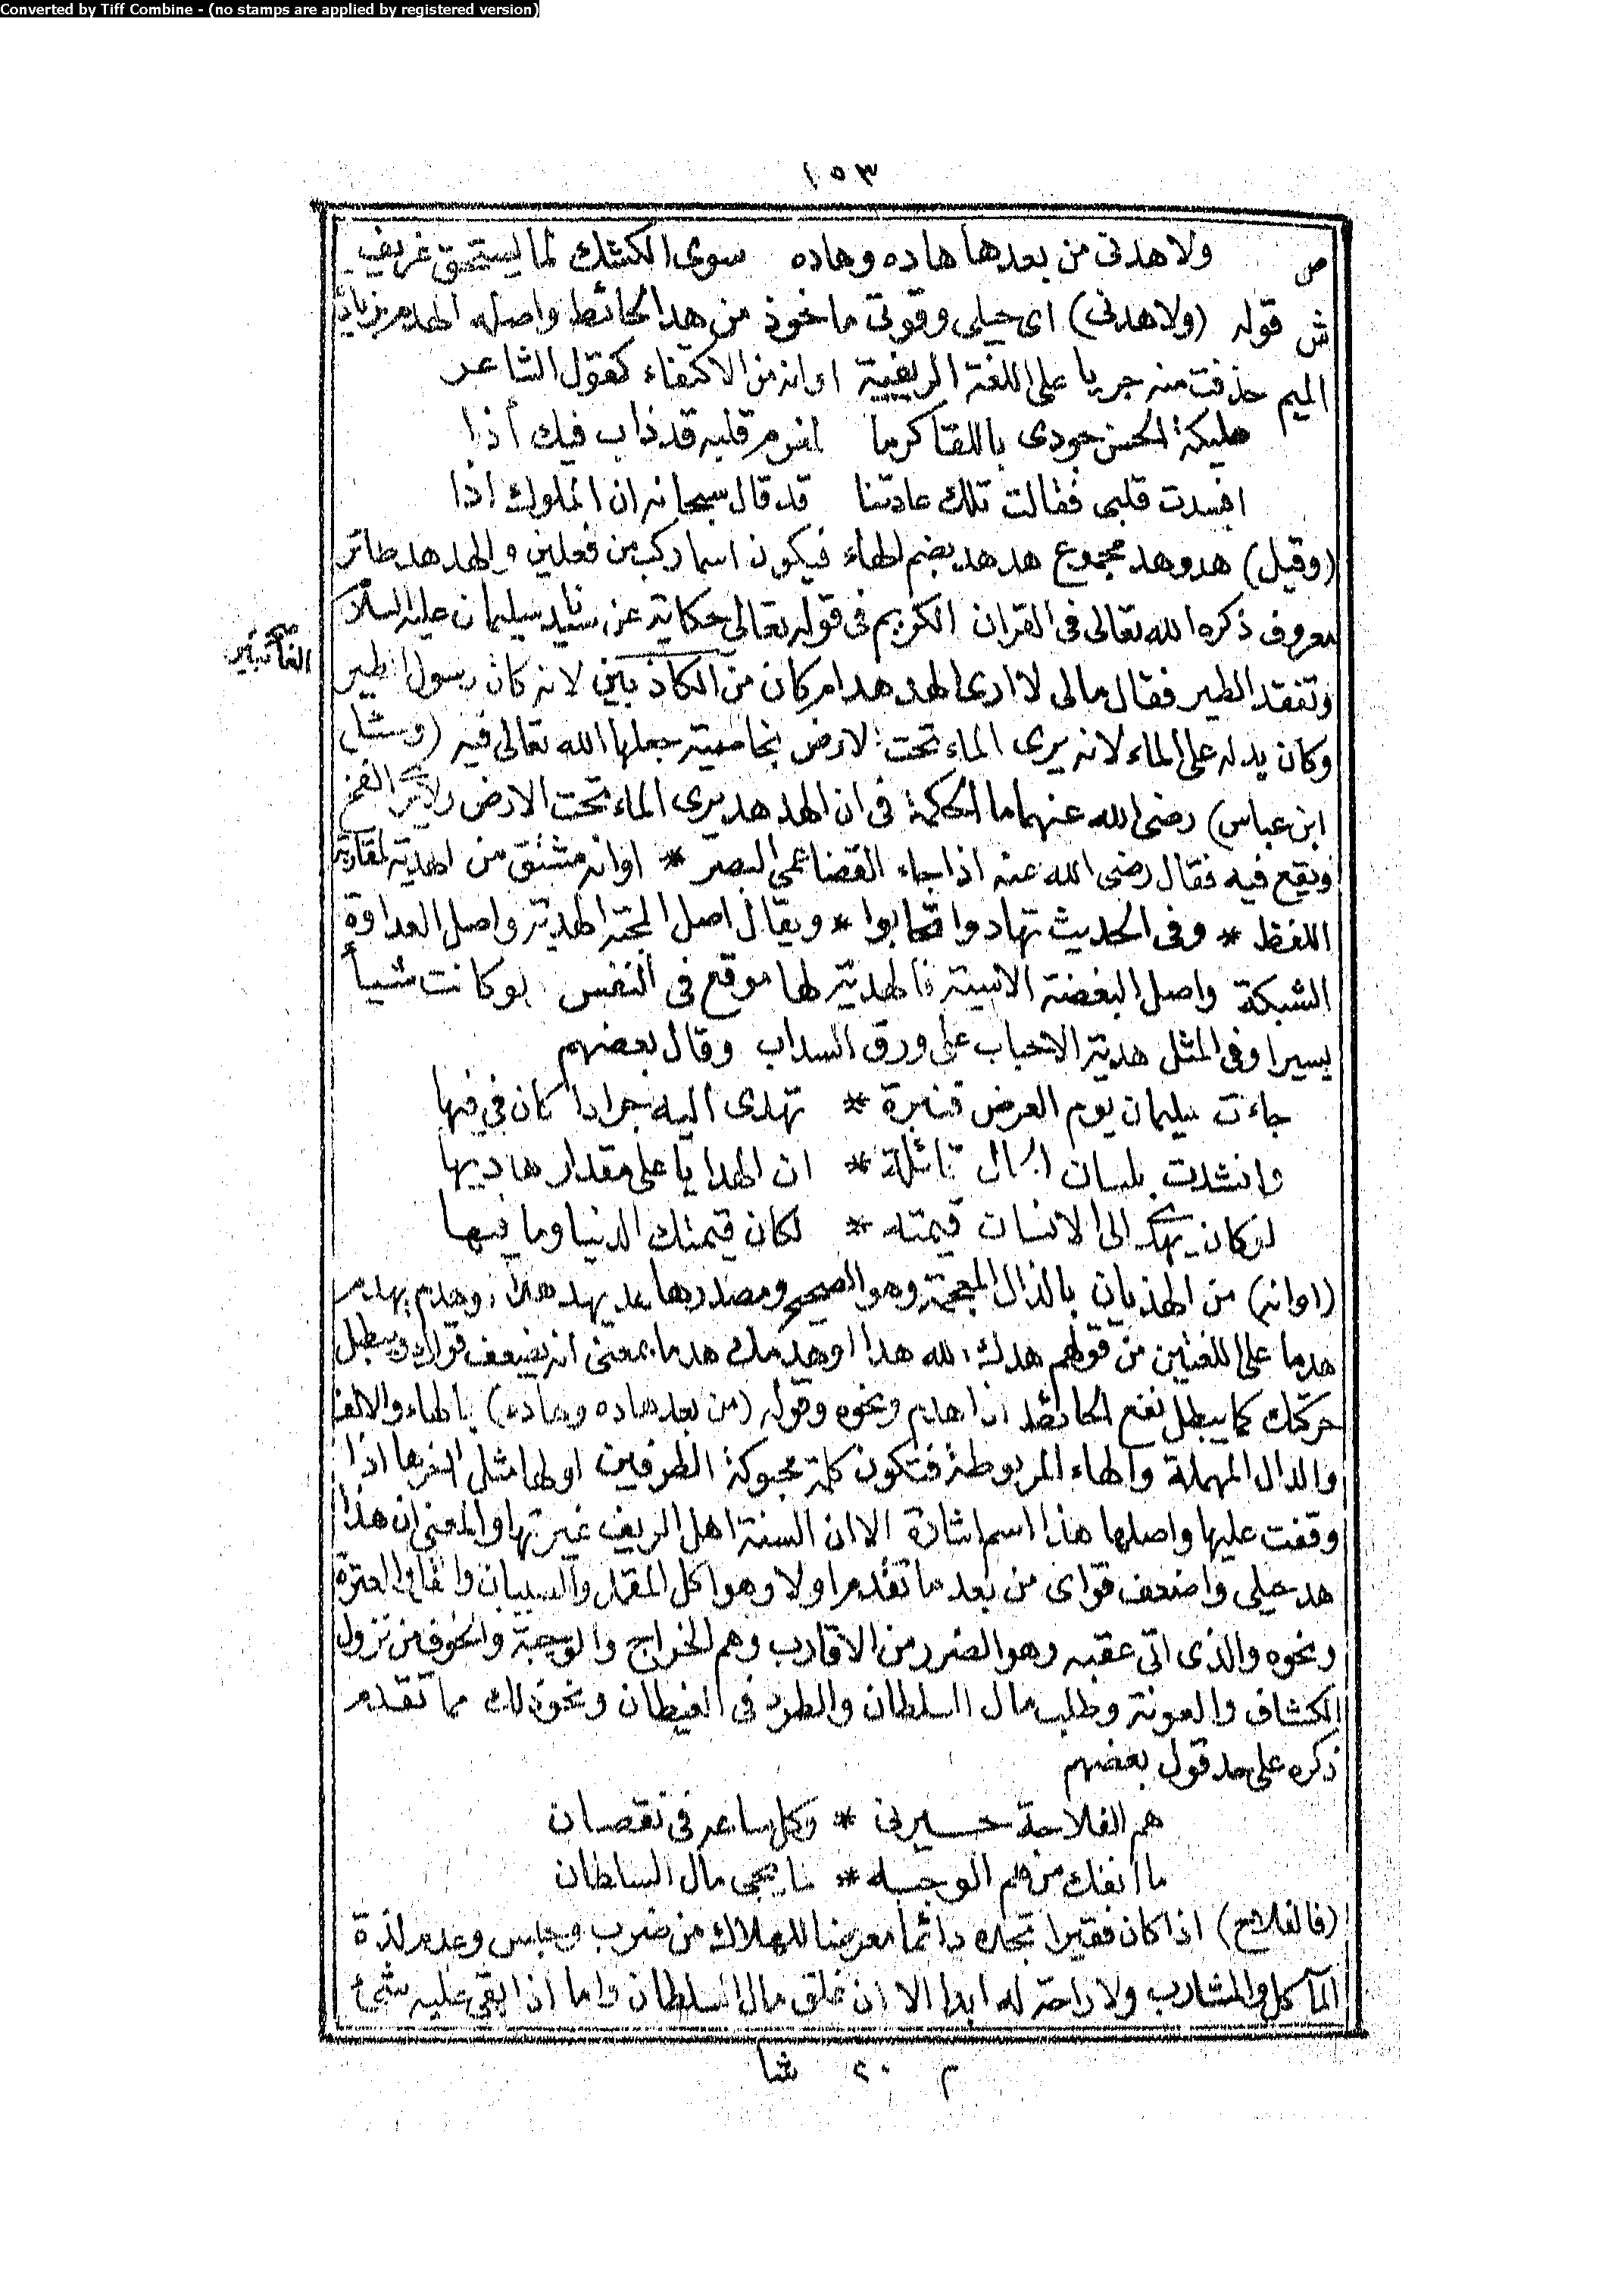 Converted by Tiff Combine - (no stamps are applied by registered version)
١٥٣
ص ولا هدنى من بعدها هاده وهاده سوى الكشك لما يستحق غريف
ش قوله (ولا هدنى) اى حيلى وقوتى ماخوذ من هد الحائط واصله الهدم بزيادة
الميم حذفت منه جريا على اللغة الريفية او انه من الاكتفاء كقول الشاعر
مليكة الحسن جودى باللقا كرما لمغرم قلبه قد ذاب فيك أذا
افسدت قلبى فقالت تلك عادتنا قد قال سبحانه ان الملوك اذا
(وقيل) هد وهد مجموع هدهد بضم الهاء فيكون اسما ركب من فعلين والهدهد طائر
معروف ذكره الله تعالى فى القران الكريم فى قوله تعالى حكاية عن سيد سليمان عليه السلام
وتفقد الطير فقال مالى لا ارى الهدهد ام كان من الكاذبين لانه كان رسول الطير
الغائبين
وكان يدله على الماء لانه يرى الماء تحت الارض بخاصية جعلها الله تعالى فيه (وسئل
ابن عباس) رضى الله عنهما ما الحكمة فى ان الهدهد يرى الماء تحت الارض ولا يرى الفخ
ويقع فيه فقال رضى الله عنه اذا جاء القضا عمى البصر * او انه مشتق من الهدية لمقاربة
اللفظ * وفى الحديث تهادوا تحابوا * ويقال اصل المحبة الهدية واصل العداوة
الشبكة واصل البغضة الانسية فالهدية لها موقع فى النفس لو كانت شيأ
يسيرا وفى المثل هدية الاحباب على ورق السداب وقال بعضهم
جاءت سليمان يوم العرض قنبرة * تهدى اليه جرادا كان فى فيها
وانشدت بلسان الحال قائلة * ان الهدايا على مقدار هاديها
لو كان يهدى الى الانسان قيمته * لكان قيمتك الدنيا وما فيها
(او انه) من الهذيان بالذال المعجمة وهو الصحيح ومصدرها هد يهد هدا وهدم يهدم
هدما على اللغتين من قولهم هدك الله هدا او هدمك هدما بمعنى انه يضعف قواك ويبطل
حركتك كما يبطل نفع الحائط اذا هدم ونحوه وقوله (من بعد هاده وهاده) بالهاء والالف
والدال المهملة والهاء المربوطة فتكون كلمة محبوكة الطرفين اولها مثل اخرها اذا
وقفت عليها واصلها هذا اسم اشارة الا ان السنة اهل الريف غيرتها والمعنى ان هذا
هد حيلى واضعف قواى من بعد ما تقدم اولا وهو اكل القمل والسيبان والعترة
ونحوه والذى اتى عقبه وهو الضرر من الاقارب وهم الخراج والوجبة والخوف من نزول
الكشاف والعونة وطلب مال السلطان والطرد فى الغيطان ونحو ذلك مما تقدم
ذكره على حد قول بعضهم
هم الفلاحة حيرنى * وكل ساعه فى نقصان
ما انفك من هم الوجبه * لما يجى مال السلطان
(فالفلاح) اذا كان فقيرا تجده دائما معرضا للهلاك من ضرب وحبس وعدم لذة
المآكل والمشارب ولا راحة له ابدا الا ان غلق مال السلطان واما اذا بقى عليه شئ
م ٢٠ شا